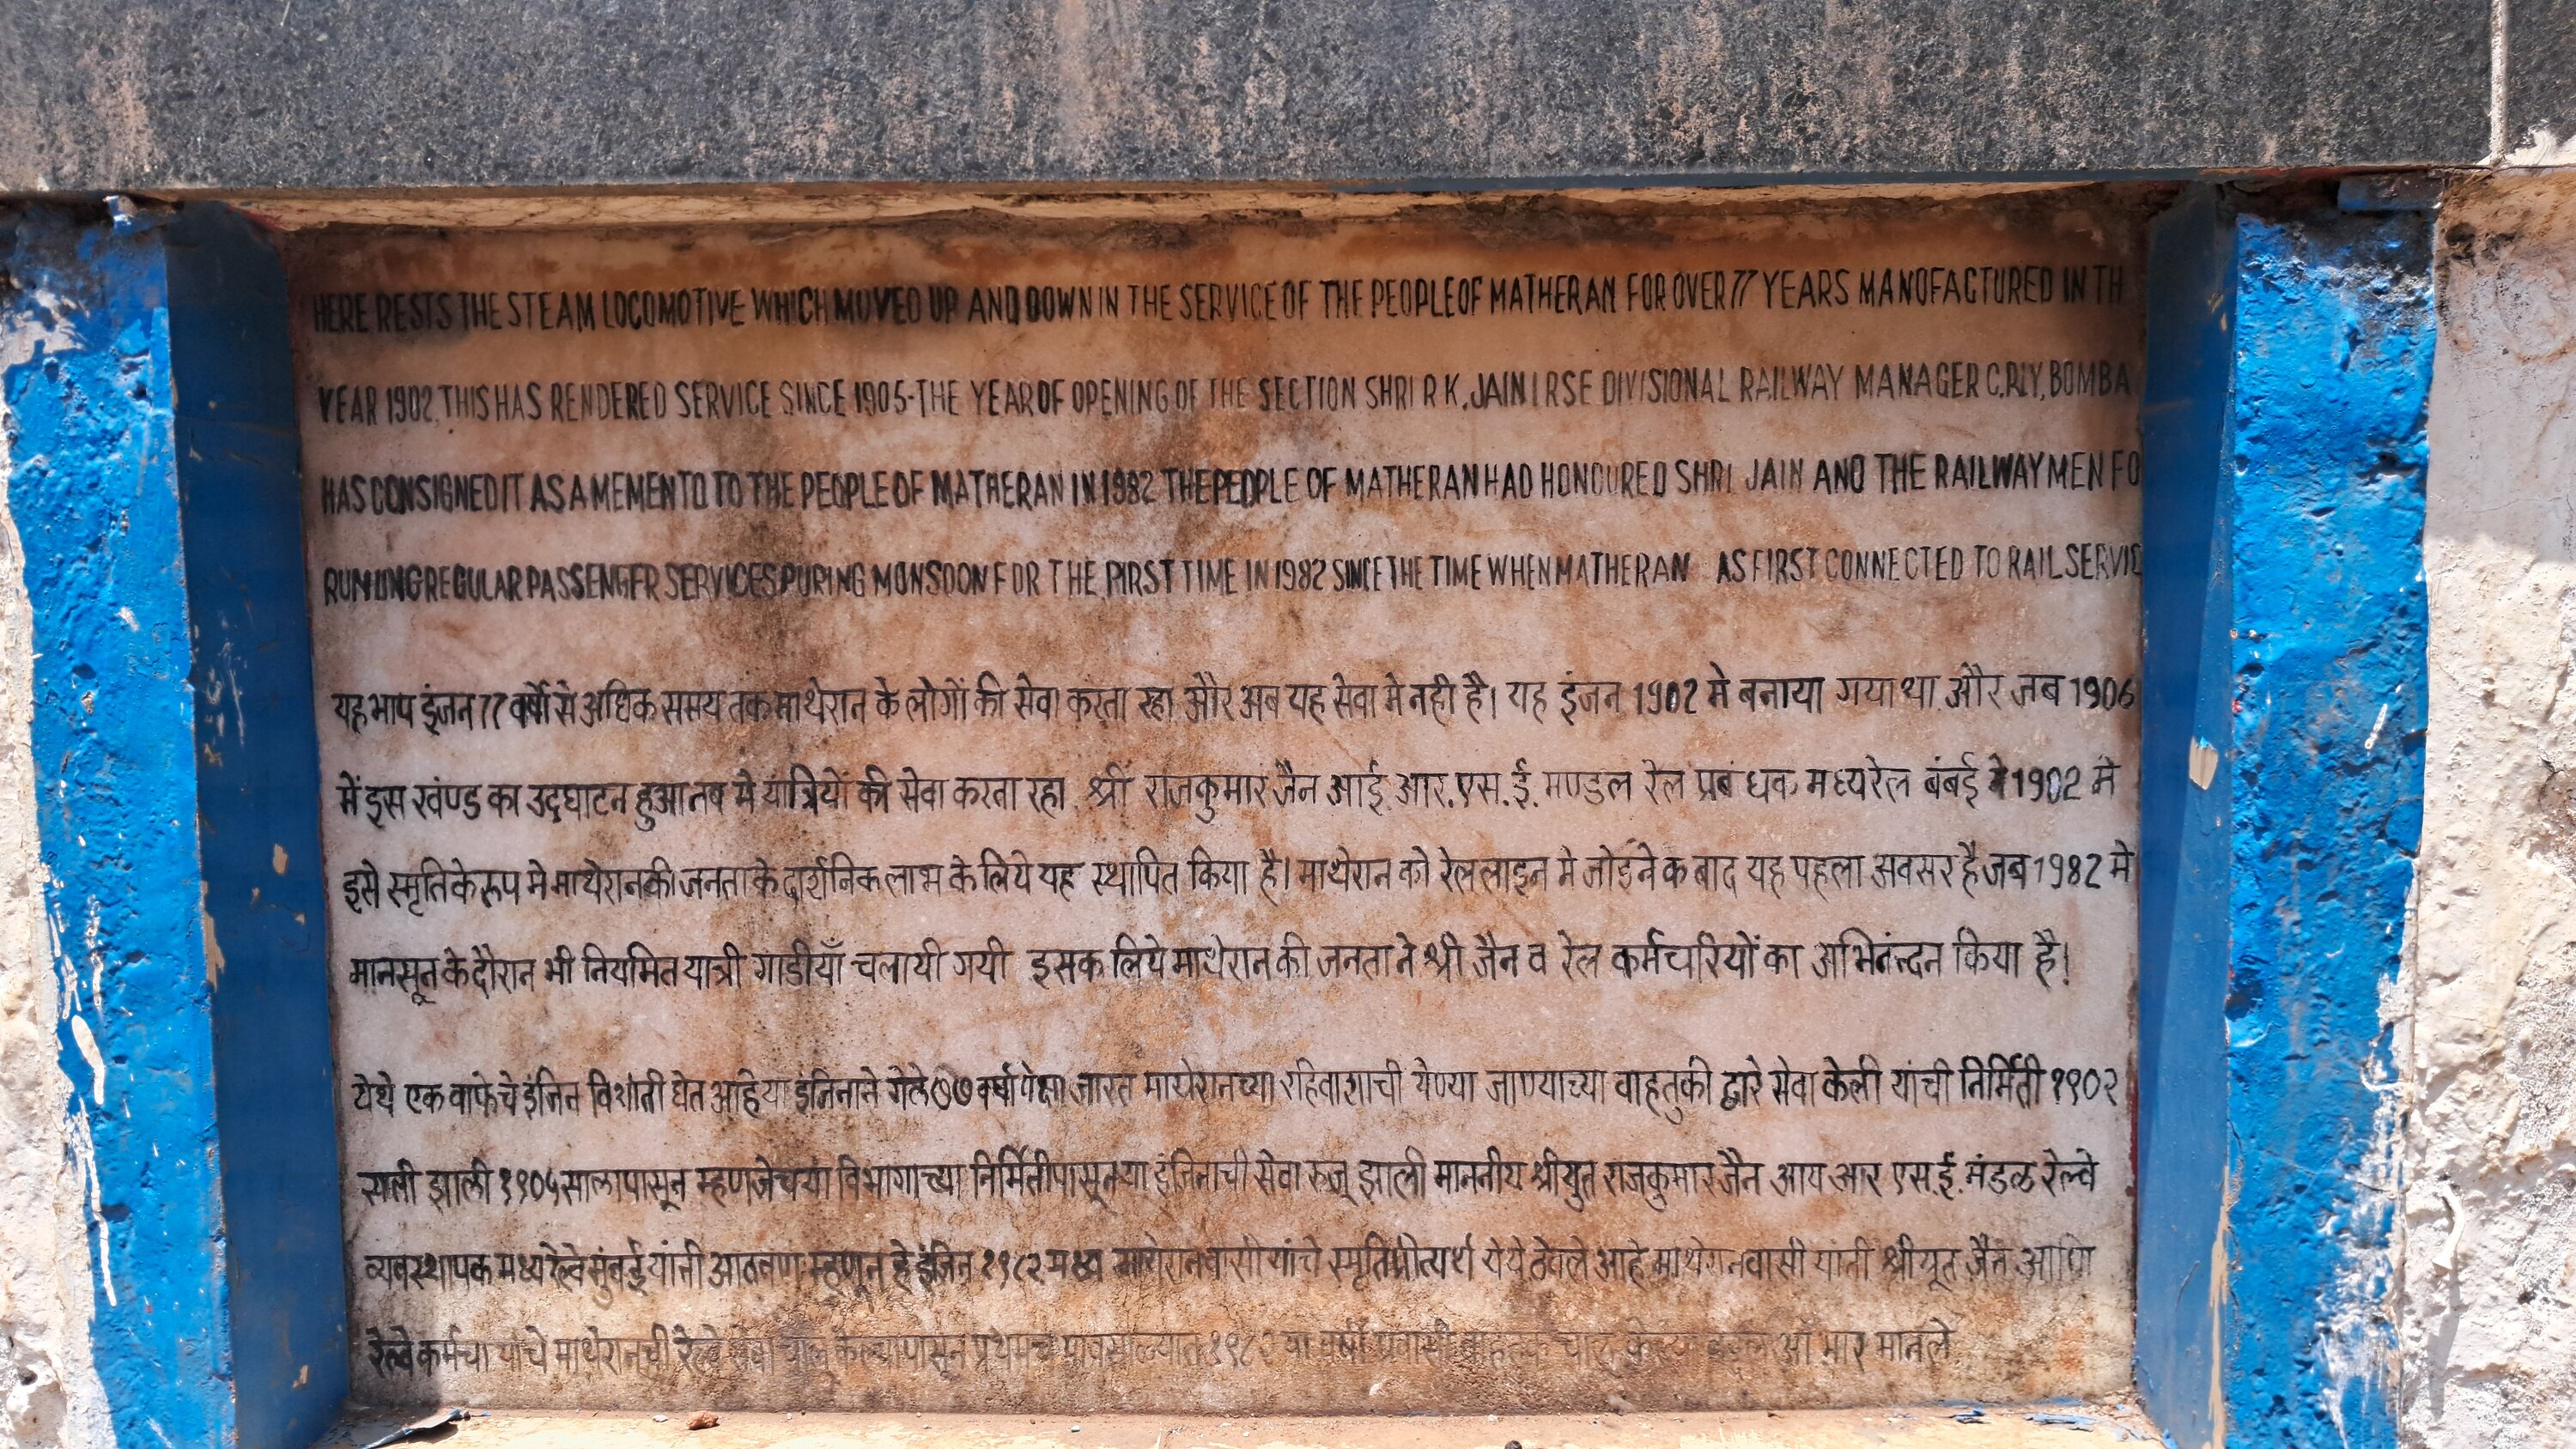 HERE RESTS THE STEAM LOCOMOTIVE WHICH MOVED UP AND DOWN IN THE SERVICE OF THE PEOPLE OF MATHERAN FOR OVER 77 YEARS MANOFACTURED IN TH
YEAR 1902, THIS HAS RENDERED SERVICE SINCE 1905-THE YEAR OF OPENING OF THE SECTION SHRI R K. JAIN I RSE DIVISIONAL RAILWAY MANAGER C.RLY, BOMBA
HAS CONSIGNED IT AS A MEMENTO TO THE PEOPLE OF MATHERAN IN 1982 THE PEOPLE OF MATHERAN HAD HONOURED SHRI JAIN AND THE RAILWAYMEN FO
RUNUNG REGULAR PASSENGFR SERVICES PURING MONSOON FOR THE PIRST TIME IN 1982 SINCE THE TIME WHEN MATHERAN AS FIRST CONNECTED TO RAIL SERVIC
यह भाप इंजन 77 वर्षों से अधिक समय तक माथेरान के लोगों की सेवा करता रहा और अब यह सेवा मे नही है। यह इंजन 1902 मे बनाया गया था और जब 1906
में इस खंण्ड का उदघाटन हुआ तब मे यात्रियों की सेवा करता रहा. श्री राजकुमार जैन आई. आर. एस. ई. मण्डल रेल प्रबंधक मध्यरेल बंबई ने 1902 मे
इसे स्मृति के रूप मे माथेरान की जनता के दार्शनिक लाभ के लिये यह स्थापित किया है। माथेरान को रेल लाइन मे जोडने क बाद यह पहला अवसर है जब 1982 मे
मानसून के दौरान भी नियमित यात्री गाडीयाँ चलायी गयी इसक लिये माथेरान की जनता ने श्री जैन व रेल कर्मचारियों का अभिनंन्दन किया है।
येथे एक वाफेचे इंजिन विश्रांती घेत आहे या इंजिनाने गेले ७७ वर्षापेक्षा जास्त माथेरानच्या रहिवाशाची येण्या जाण्याच्या वाहतुकी द्वारे सेवा केली यांची निर्मिती १९०२
साली झाली १९०५ सालापासून म्हणजेच या विभागाच्या निर्मितीपासून या इंजिनाची सेवा रुजू झाली माननीय श्रीयुत राजकुमार जैन आय आर एस. ई. मंडळ रेल्वे
व्यवस्थापक मध्य रेल्वे मुंबई यांनी आठवण म्हणून हे इंजिन १९८२ मध्ये माथेरानवासीयांचे स्मृतिप्रीत्यर्थ येथे ठेवले आहे माथेरानवासी यांनी श्रीयूत जैन आणि
रेल्वे कर्मचा यांचे माथेरानची रेल्वे सेवा चालू केल्यापासून प्रथमच पावसाळ्यात १९८२ या वर्षी प्रवासी वाहतूक चालू मानले